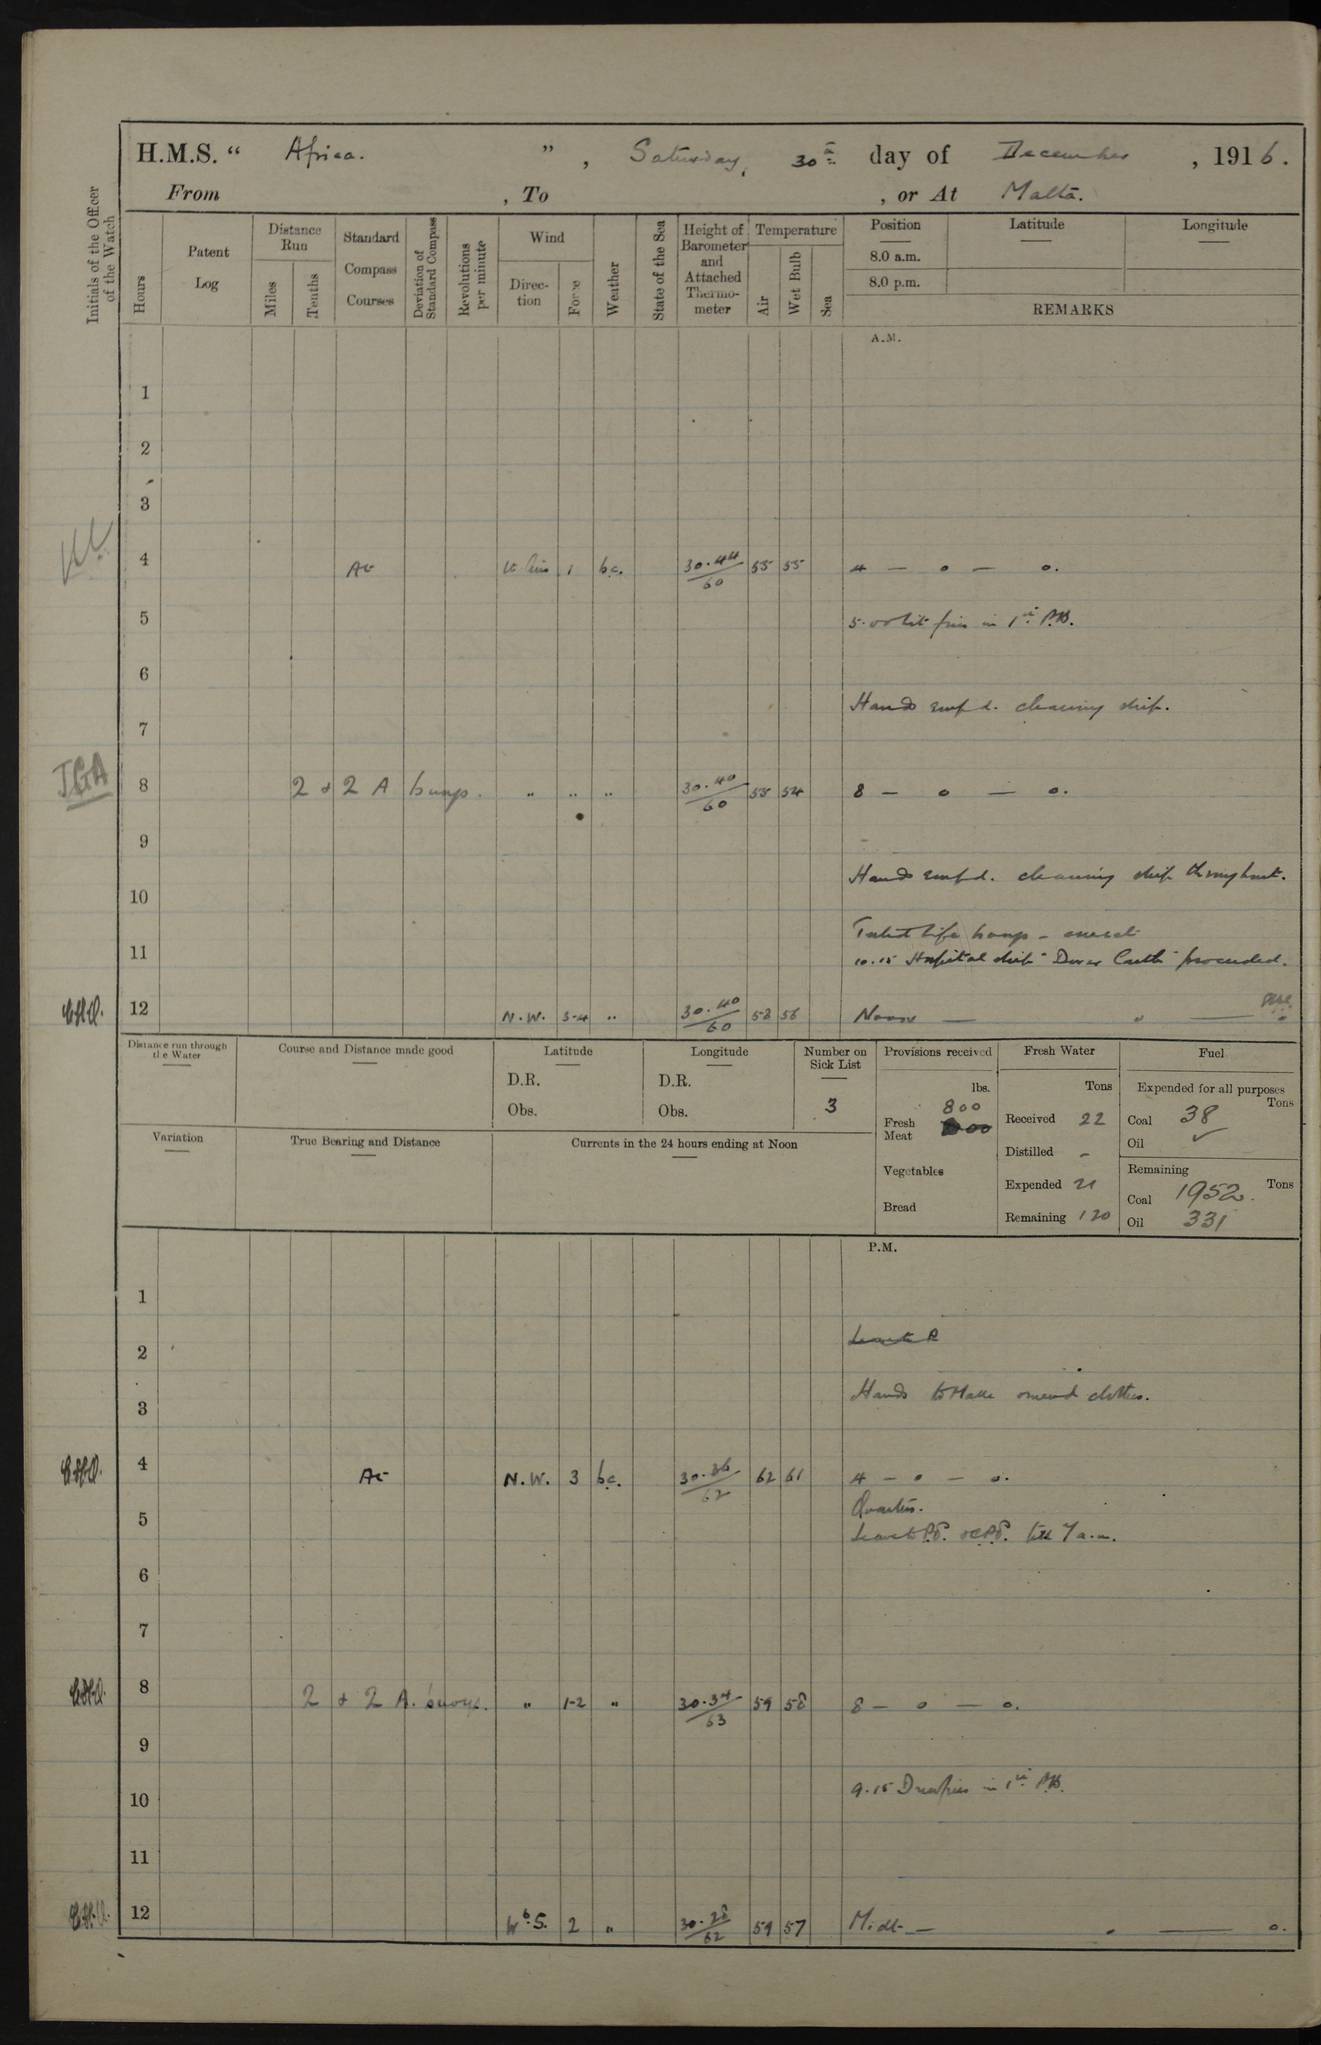 H.M.S. “ Africa. ” , Saturday, 30th day of December , 1916.
From , To , or At Malta.
Initials of the Officer of the Watch
Hours
Patent Log
Distance Run
Miles
Tenths
Standard Compass Courses
Deviation of Standard Compass
Revolutions per minute
Wind
Direction
Force
Weather
State of the Sea
Height of Barometer and Attached Thermometer
Temperature
Air
Wet Bulb
Sea
Position Latitude Longitude
8.0 a.m.
8.0 p.m.
REMARKS
A.M.
1
2
3
4 At 1 b.c. 30.44/60 55 55 4 — o — o.
5 5.00 Lit fires in 1st P.B.
6
Hands empd. cleaning ship.
7
JGA 8 2 & 2 A buoys. " " " 30.40/60 55 54 8 — o — o.
9
Hands empd. cleaning ship throughout.
10
Tested life buoys –
11 10.15 Hospital ship "Dover Castle" proceeded.
12 N.W. 3-4 " 30.40/60 58 56 Noon —
Distance run through the Water
Course and Distance made good
Latitude
D.R.
Obs.
Longitude
D.R.
Obs.
Number on Sick List
3
Provisions received
lbs.
800
Fresh Meat
Vegetables
Bread
Fresh Water
Tons
Received 22
Distilled -
Expended 21
Remaining 120
Fuel
Expended for all purposes
Tons
Coal 38
Oil ✓
Remaining
Tons
Coal 1952.
Oil 331
Variation
True Bearing and Distance
Currents in the 24 hours ending at Noon
P.M.
1
2 Leave to R
Hands to Make & mend clothes.
3
4 At N.W. 3 b.c. 30.36/62 62 61 4 — o — o.
Quarters.
5 Leave to P.O. & C.P.O. till 7 a.m.
6
7
8 2 & 2 A. buoys. " 1-2 " 30.34/63 59 58 8 — o — o.
9
9.15 Drew fires in 1st P.B.
10
11
12 W b S. 2 " 30.28/62 59 57 Midt. — o — o.